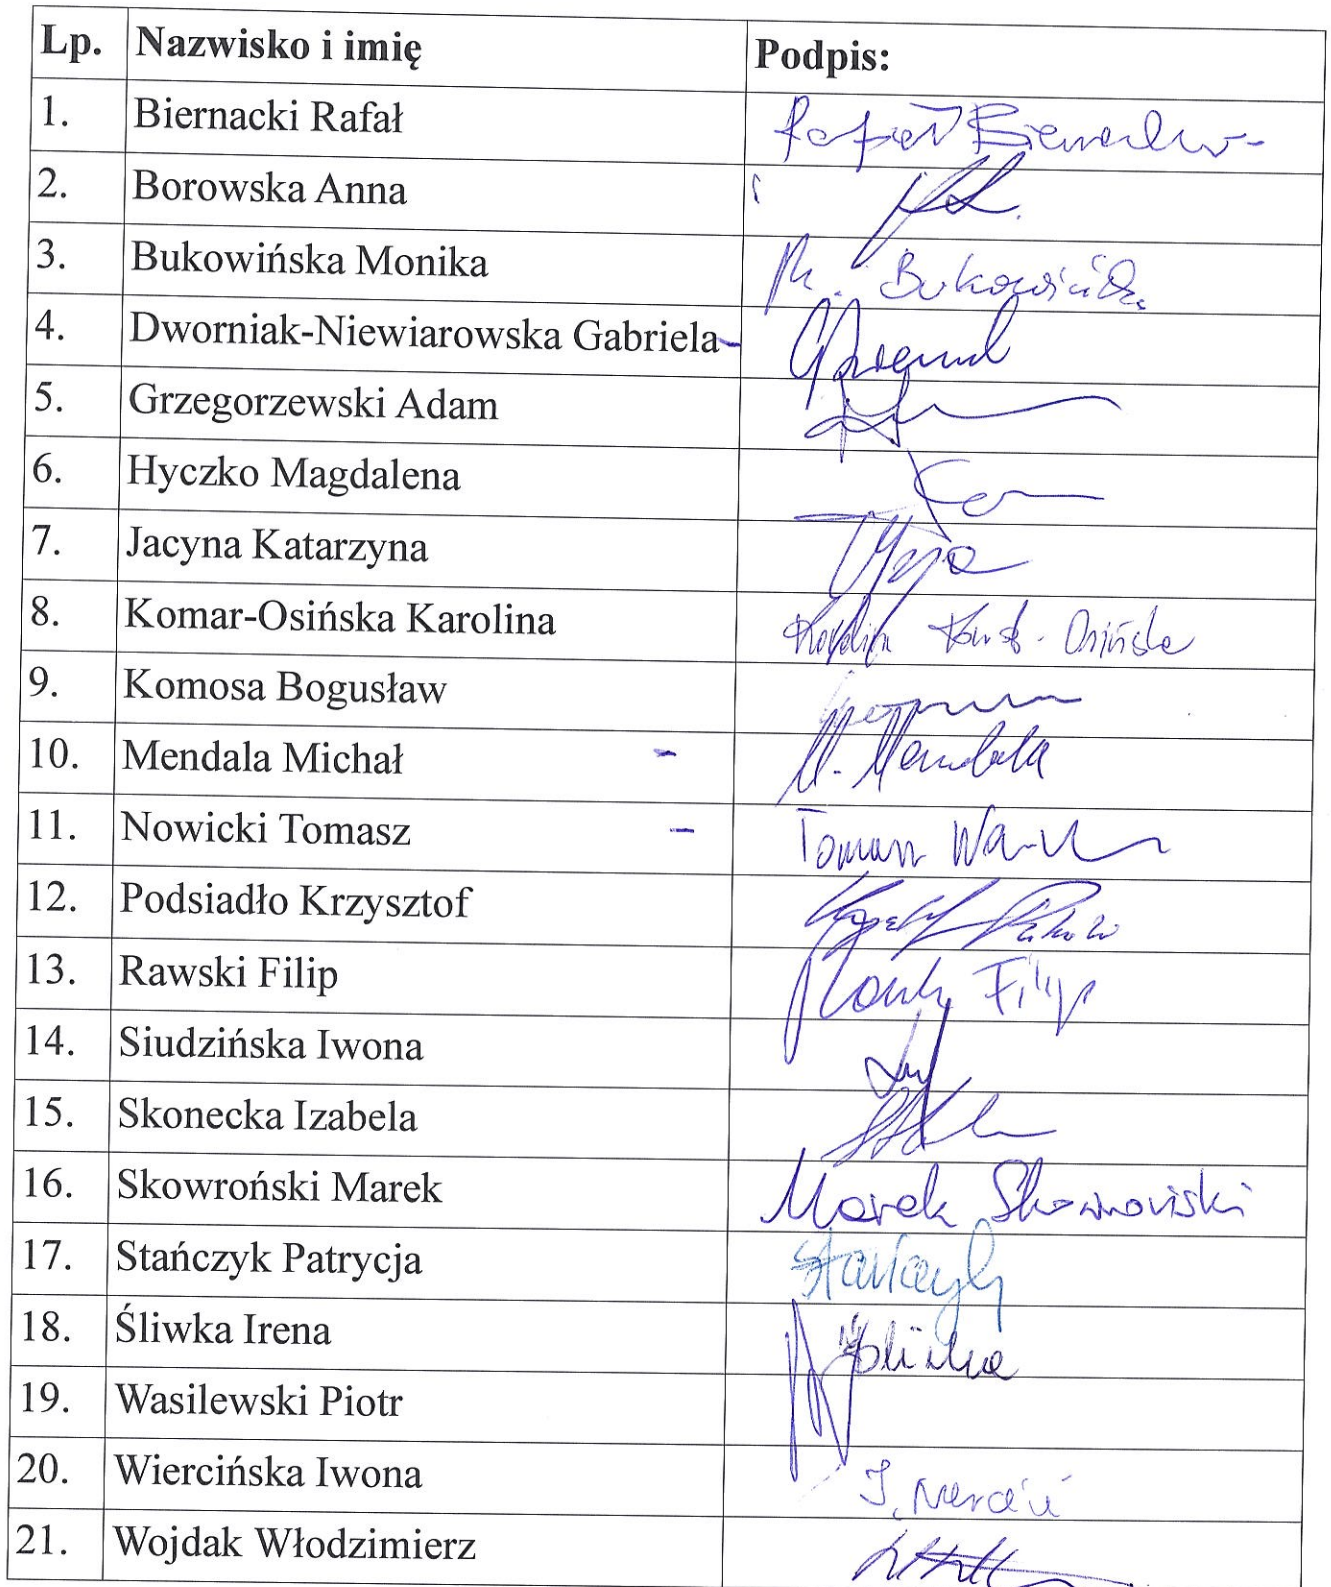 Lp. Nazwisko i imię Podpis:
1. Biernacki Rafał Rafał
2. Borowska Anna
3. Bukowińska Monika M. Bukowińska
4. Dworniak-Niewiarowska Gabriela
5. Grzegorzewski Adam
6. Hyczko Magdalena
7. Jacyna Katarzyna
8. Komar-Osińska Karolina Karolina Komar-Osińska
9. Komosa Bogusław
10. Mendala Michał - M. Mendala
11. Nowicki Tomasz - Tomasz
12. Podsiadło Krzysztof Krzysztof
13. Rawski Filip Rawski Filip
14. Siudzińska Iwona
15. Skonecka Izabela
16. Skowroński Marek Marek Skowroński
17. Stańczyk Patrycja Stańczyk
18. Śliwka Irena Śliwka
19. Wasilewski Piotr
20. Wiercińska Iwona
21. Wojdak Włodzimierz